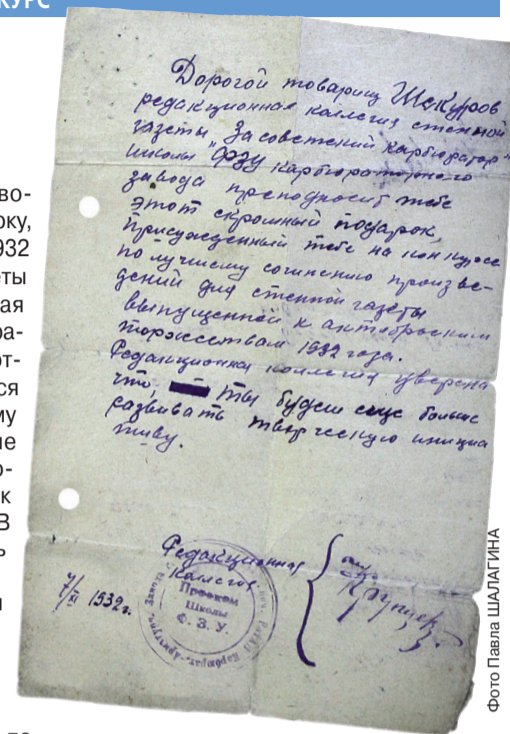 КУРС
во-
рку,
1932
еты
ая
ра-
от-
ся
му
ие
о-
к
В
ь
Дорогой товарищ Шакуров
редакционная каллегия стенной
газеты „За советский карбюратор"
школы "ФЗУ карбюраторного
завода преподносит тебе
этот скромный подарок,
присужденный тебе на конкурсе
по лучшему сочинению произве-
дений для стенной газеты
выпущенной к актобрьским
торжествам 1932 года.
Редакционка коллегия уверена
что, ты будеш еще больше
развивать творческую инициа
тиву.
Редакционная
каллегия
7/XI 1932г.
Профком
Школы
Ф. З. У.
Фото Павла ШАЛАГИНА